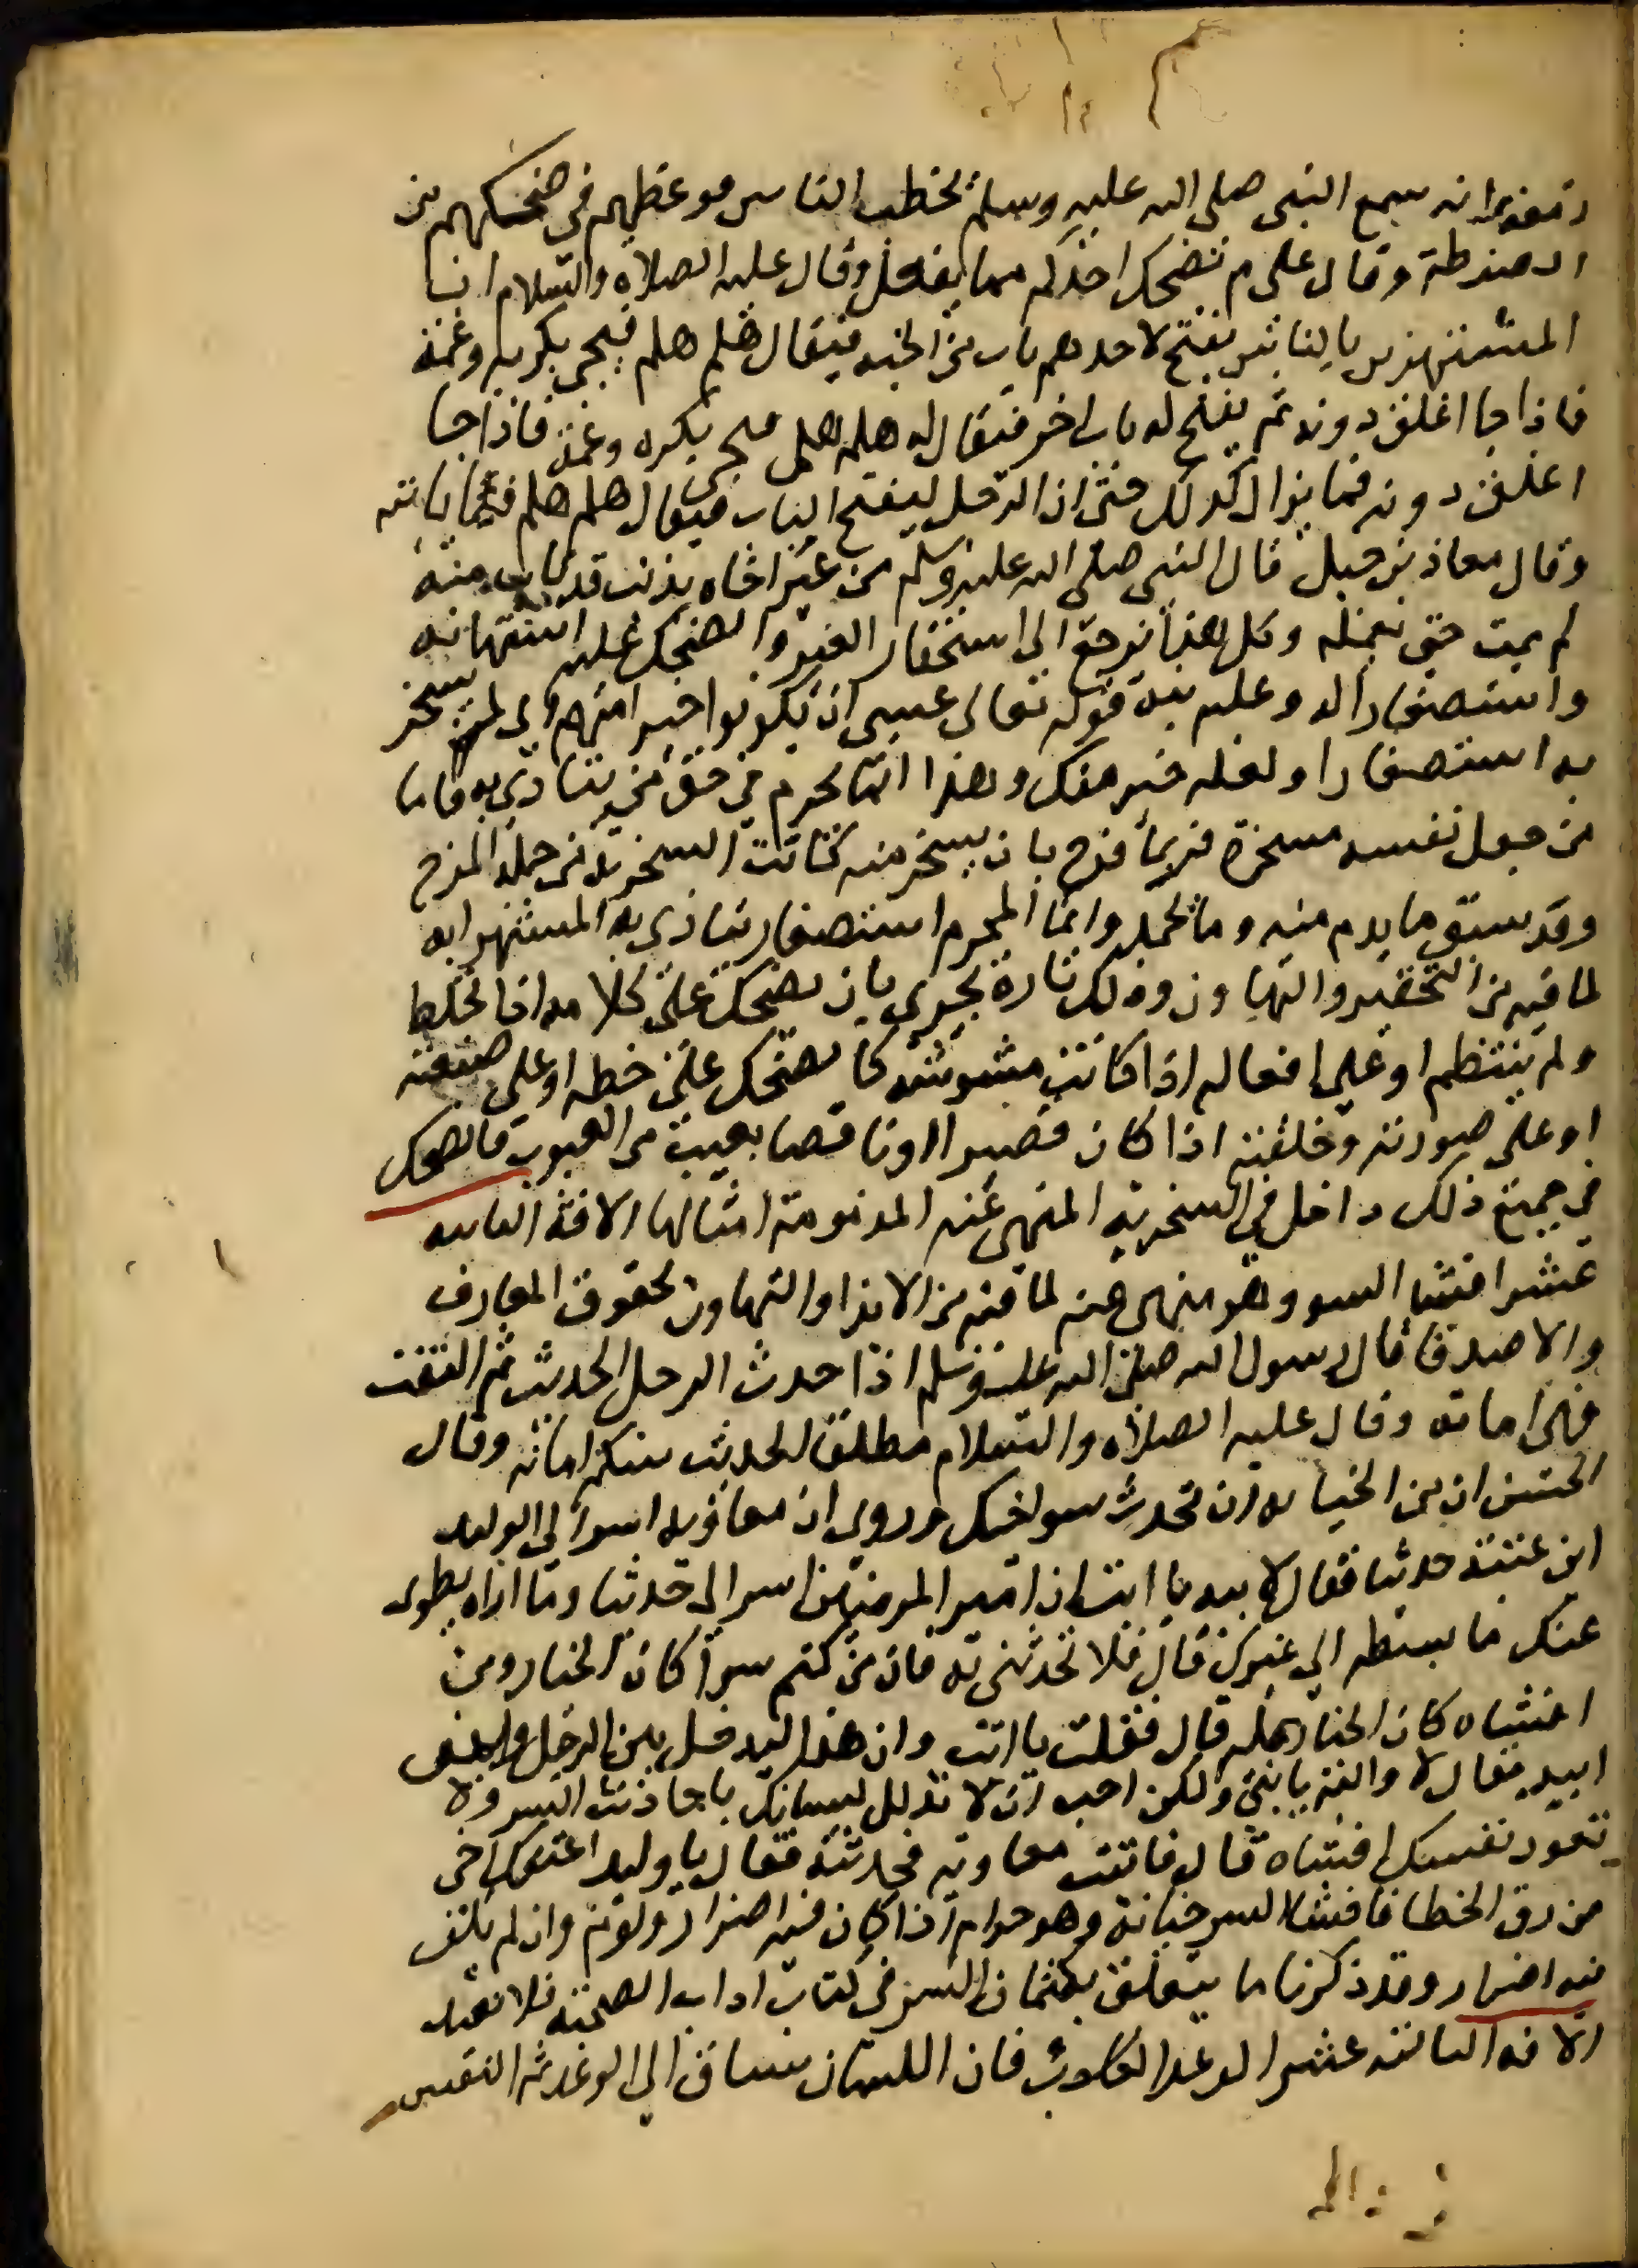 زمعة انه سمع النبى صلى الله عليه وسلم يخطب الناس فوعظهم في ضحكهم من
الضرطة وقال على م يضحك احدكم مما يفعل وقال عليه الصلاة والسلام ان
المستهزين بالناس يفتح لاحدهم باب من الجنة فيقال هلم هلم فيجى بكربه وغمه
فاذا جا اغلق دونه ثم يفتح له باب اخر فيقال له هلم هلم فيجى بكربه وغمه فاذا جا
اغلق دونه فما يزال كذلك حتى ان الرجل ليفتح الباب فيقال هلم هلم فما ياتيه
وقال معاذ بن جبل قال النبى صلى الله عليه وسلم من عير اخاه بذنب قد تاب منه
لم يمت حتى يعمله وكل هذا يرجع الى استحقار الغير والضحك عليه استهانة
واستصغارا له وعليه نبه قوله تعالى عسى ان يكونوا خيرا منهم اى لم تسخر
به استصغارا ولعله خير منك وهذا انما يحرم في حق من يتاذى به فاما
من جعل نفسه مسخرة فربما فرح بان يسخر منه كانت السخرية من جملة المزح
وقد سبق ما يذم منه وما يحمد وانما المحرم استصغار يتاذى به المستهزا به
لما فيه من التحقير والتهاون وذلك تارة يجرى بان يضحك على كلامه اذا تخبط
ولم ينتظم او على افعاله اذا كانت مشوشة كالضحك على خطه او على صنعته
او على صورته وخلقته اذا كان قصيرا او ناقصا بعيب من العيوب فالضحك
في جميع ذلك داخل في السخرية المنهى عنه المذمومة امثالها الافة الثانية
عشر افشا السر وهو منهى عنه لما فيه من الايذا والتهاون بحقوق المعارف
والاصدقا قال رسول الله صلى الله عليه وسلم اذا حدث الرجل الحديث ثم التفت
فهى امانة وقال عليه الصلاة والسلام مطلقا الحديث بينكم امانة وقال
الحسن ان من الخيانة ان تحدث بسر اخيك وروى ان معاوية اسر الى الوليد
ابن عتبة حديثا فقال لابيه يا ابت ان امير المومنين اسر الى حديثا وما اراه يطوى
عنك ما بسطه الى غيرك قال فلا تحدثنى به فان من كتم سرا كان الخيار ومن
افشاه كان الخيار عليه قال فقلت يا ابت وان هذا ليدخل بين الرجل وبين
ابيه فقال لا والله يا بنى ولكن احب ان لا تذلل لسانك باحاديث السر ولا
تعود نفسك افشاه قال فاتيت معاوية فحدثته فقال يا وليد اعتقك اخى
من رق الخطا فافشا السر خيانة وهو حرام اذا كان فيه اضرار ولوم وان لم يكن
فيه اضرار وقد ذكرنا ما يتعلق بكتمان السر في كتاب اداب الصحبة فلا نعيد
الافة الثالثة عشر الوعد الكاذب فان اللسان سباق الى الوعد ثم النفس